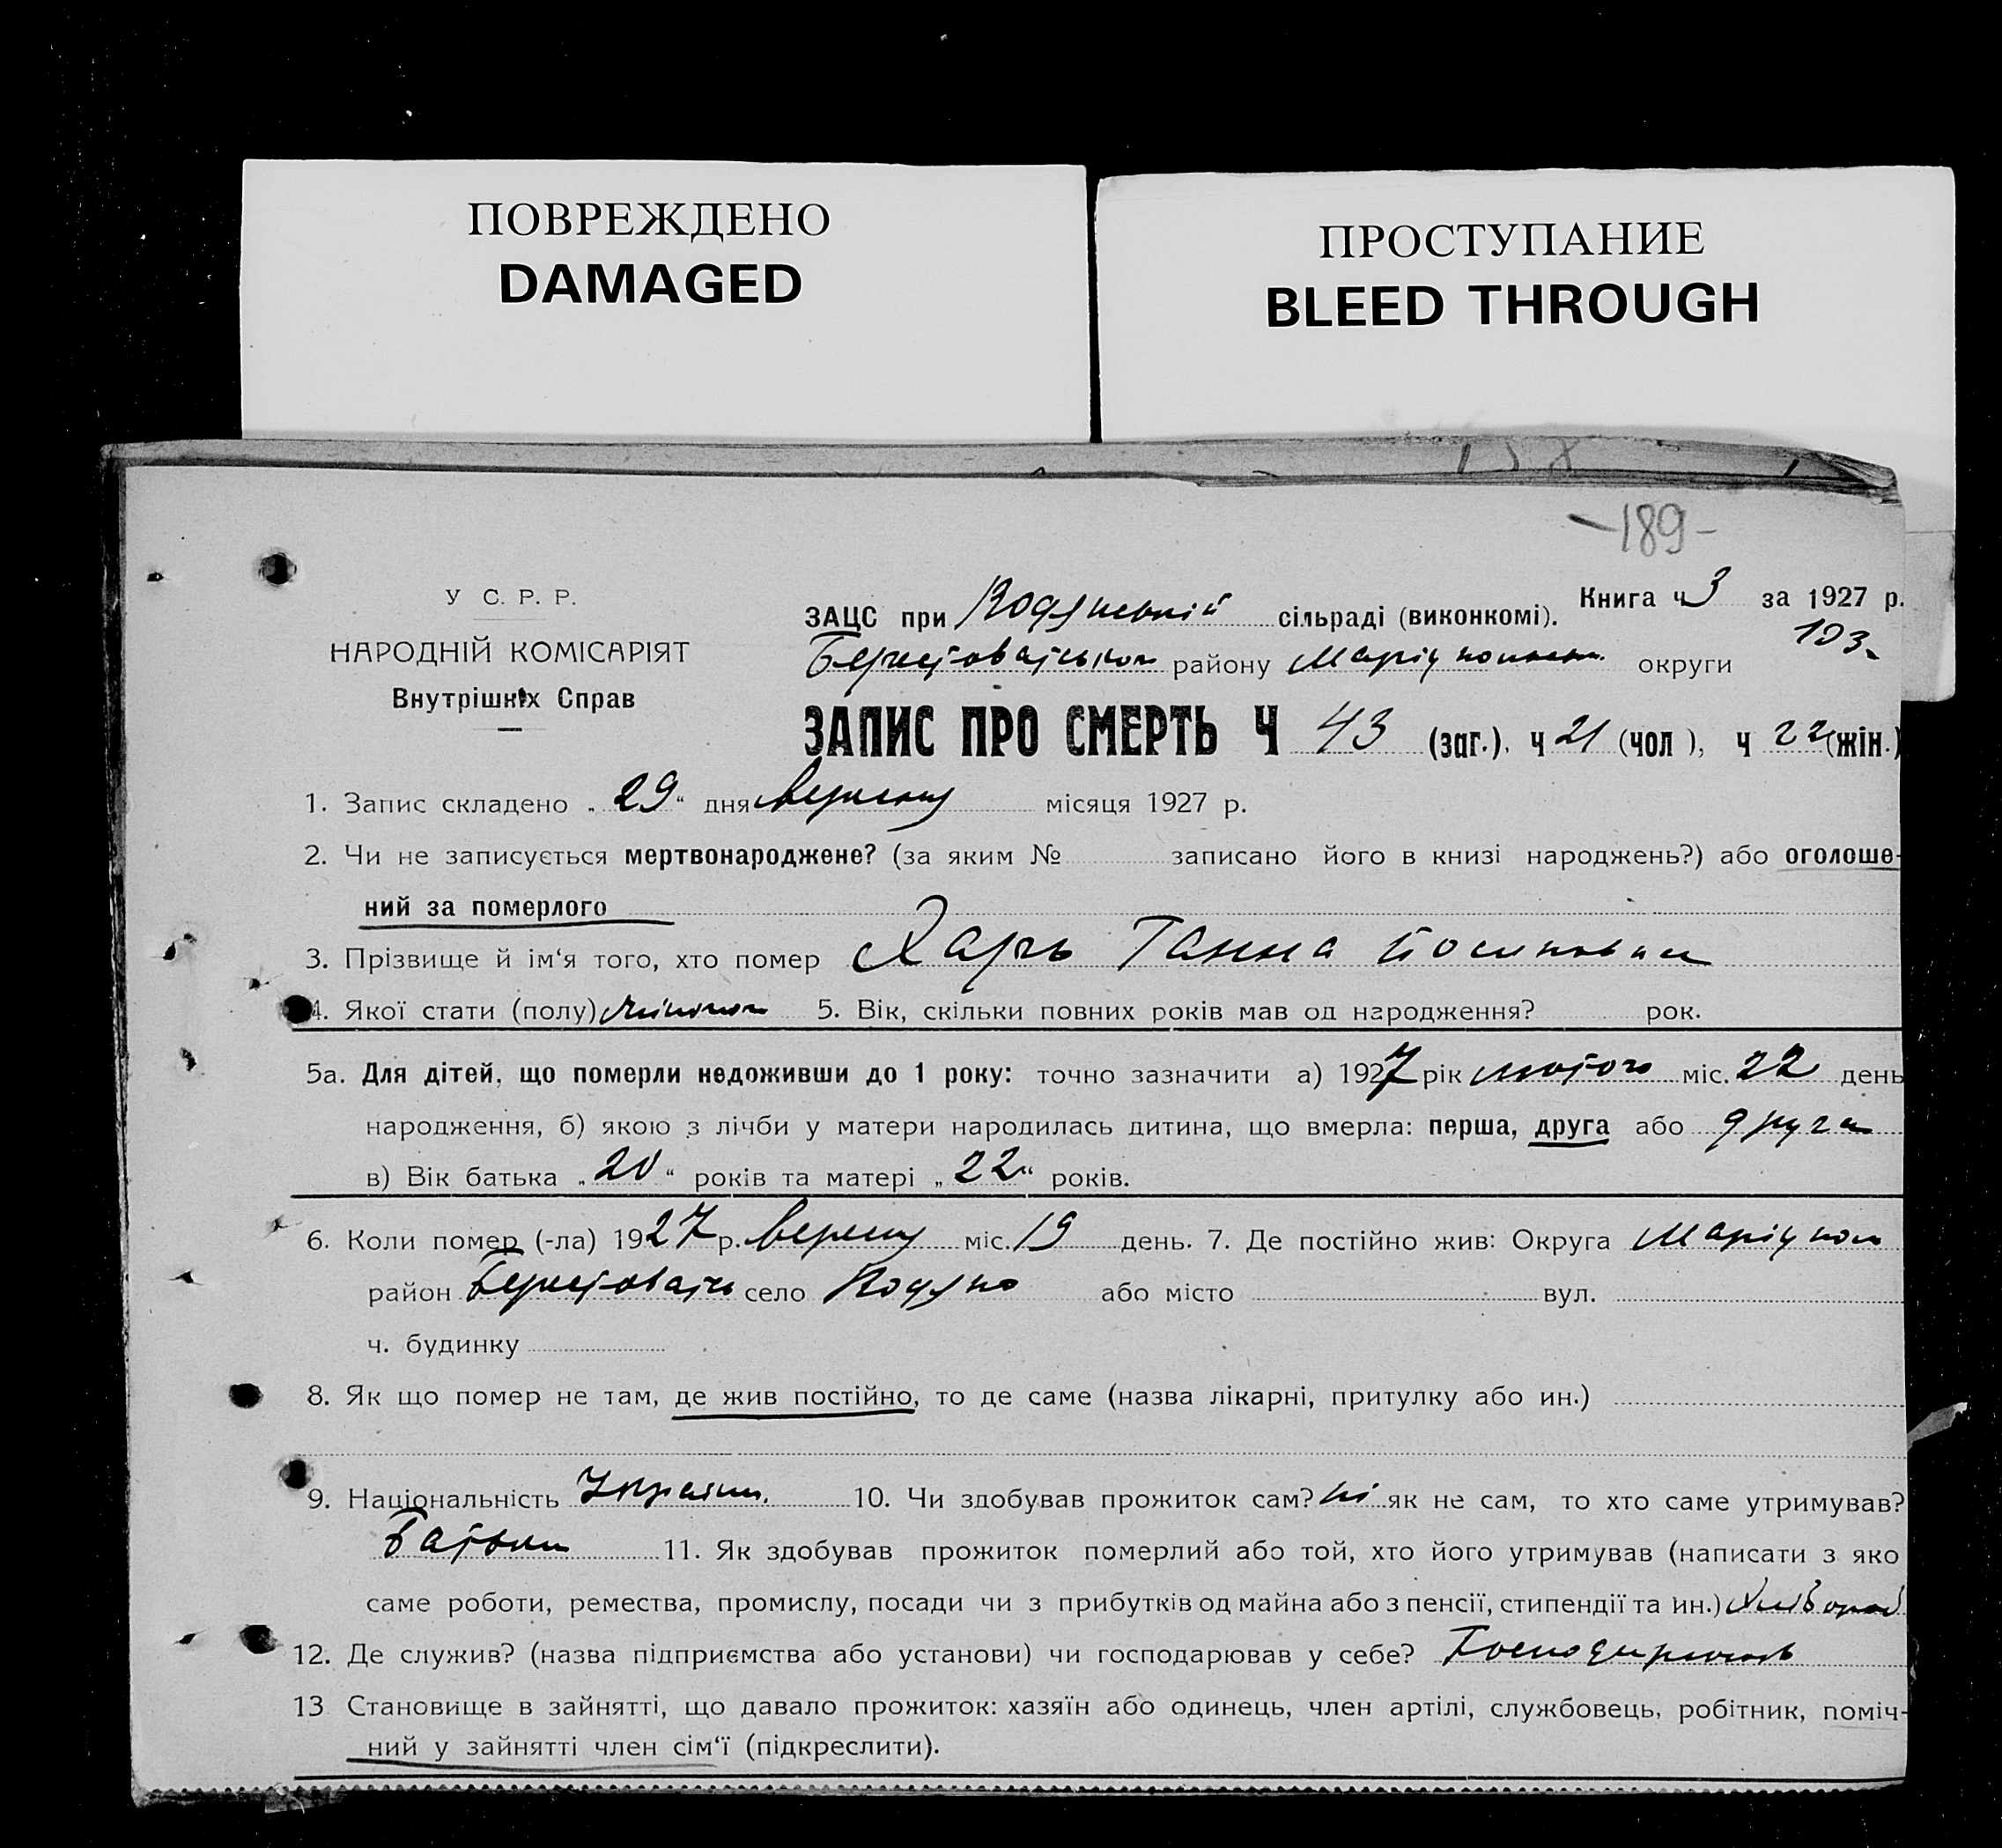 ПОВРЕЖДЕНО
DAMAGED
ПРОСТУПАНИЕ
BLEED THROUGH
-189-
У С. Р. Р.
НАРОДНІЙ КОМІСАРІЯТ
Внутрішніх Справ
ЗАЦС при Водянській сільраді (виконкомі). Книга ч 3 за 1927 р.
103
району округи
ЗАПИС ПРО СМЕРТЬ Ч 43 (заг.), ч 21 (чол), ч 22 (жін.)
1. Запис складено „29“ дня вересня місяця 1927 р.
2. Чи не записується мертвонароджене? (за яким № записано його в книзі народжень?) або оголоше-
ний за померлого
3. Прізвище й ім‘я того, хто помер Харь Ганна
4. Якої стати (полу) жіночої 5. Вік, скільки повних років мав од народження? рок.
5а. Для дітей, що померли недоживши до 1 року: точно зазначити а) 1927 рік лютого міс. 22 день
народження, б) якою з лічби у матери народилась дитина, що вмерла: перша, друга або друга
в) Вік батька „20“ років та матері „22“ років.
6. Коли помер (-ла) 1927 р. вересня міс. 19 день. 7. Де постійно жив: Округа Маріупол
район село Водяно або місто вул.
ч. будинку
8. Як що помер не там, де жив постійно, то де саме (назва лікарні, притулку або ин.)
9. Національність Україн. 10. Чи здобував прожиток сам? ні як не сам, то хто саме утримував?
Батьки 11. Як здобував прожиток померлий або той, хто його утримував (написати з яко
саме роботи, ремества, промислу, посади чи з прибутків од майна або з пенсії, стипендії та ин.) Хлібороб
12. Де служив? (назва підприємства або установи) чи господарював у себе?
13 Становище в зайнятті, що давало прожиток: хазяїн або одинець, член артілі, службовець, робітник, поміч-
ний у зайнятті член сім‘ї (підкреслити).